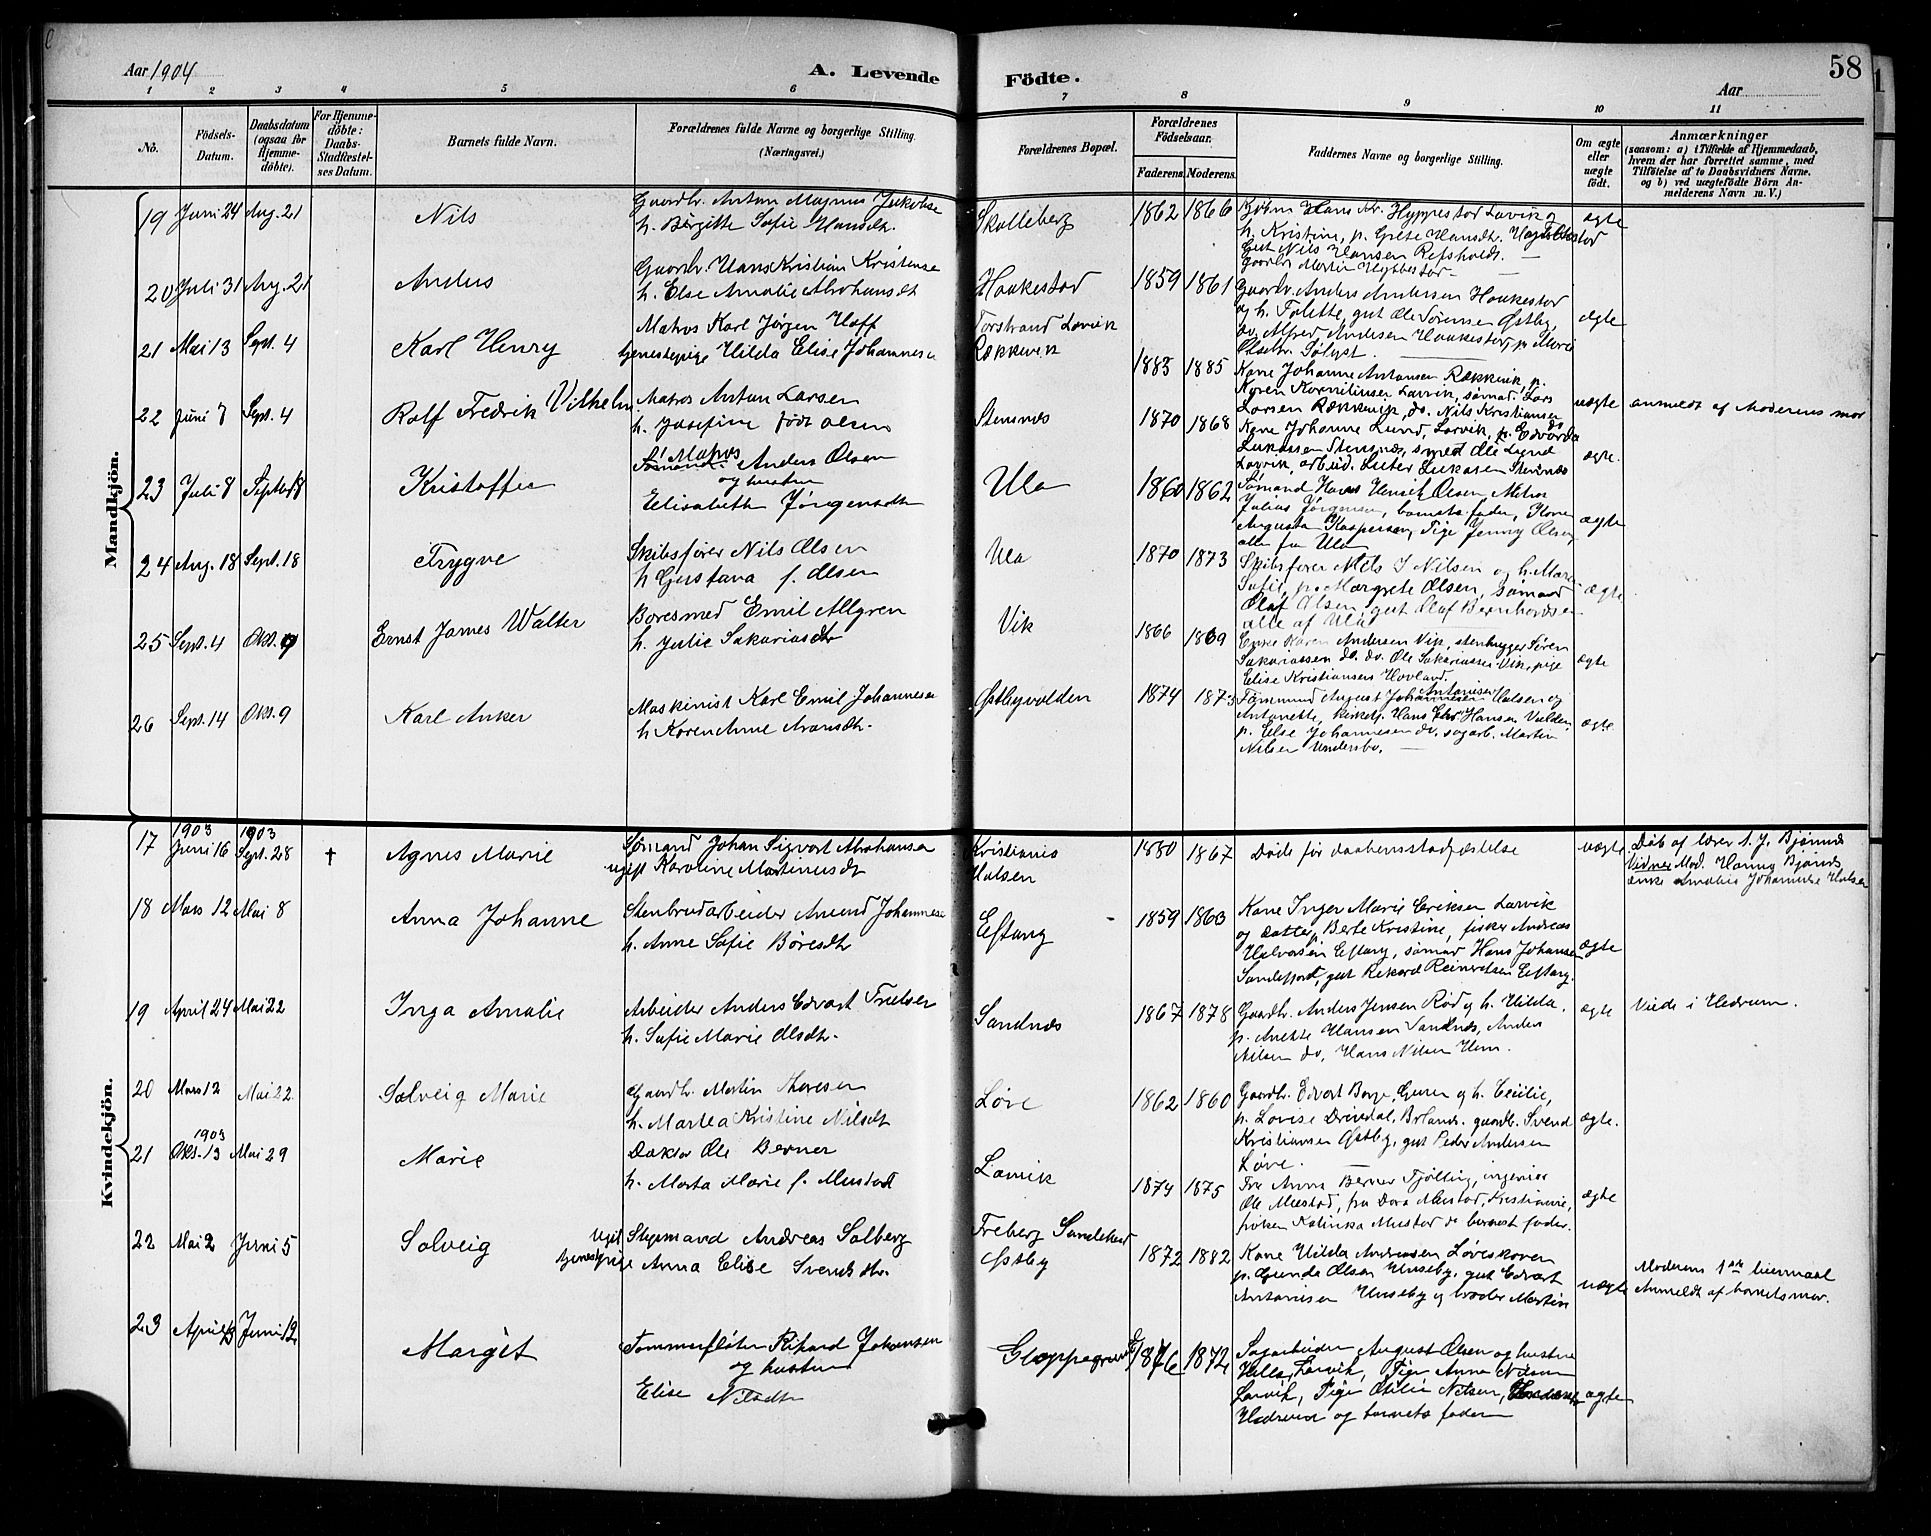 Aar 1904
A. Levende
Födte.
Aar
58
1 2 3 4 5 6 7 8 9 10 11
No.
Födsels-
Datum.
Daabsdatum
(ogsaa for
Hjemme-
döbte).
For Hjemme-
döbte:
Daabs-
Stadfæstel-
ses Datum.
Barnets fulde Navn.
Forældrenes fulde Navne og borgerlige Stilling.
(Næringsvei.)
Forældrenes Bopæl.
Forældrenes
Födselsaar.
Faderens. Moderens.
Faddernes Navne og borgerlige Stilling.
Om ægte
eller
uægte
födt.
Anmærkninger
(saasom: a) i Tilfælde af Hjemmedaab,
hvem der har forrettet samme, med
Tilföielse af to Daabsvidners Navne.
og b) ved uægtefödte Börn An-
melderens Navn m. V.)
Mandkjön.
19 Juni 24 Aug. 21 Nils
Gaardbr. Anton Magnus Jakobse
h. Birgitte Sofie Hansdt.
Skalleberg 1862 1866
h. Kristine, p. Grete Hansdt.
Gut Nils Hansen Refsholdt.
ægte
20 Juli 31 Aug. 21 Anders
Gaardbr. Hans Kristian Kristense
h. Else Amalie Abrahamsdt
Haakestad 1859 1861
Gaardbr. Anders Andersen Haakestad
og h. Tolette, gut Ole Sörensen Østby,
do. Alfred Andersen Haakestad, p. Marie
ægte
21 Mai 13 Sept. 4 Karl Henry
Matros Karl Jörgen Hoff
tjenestepige Hilda Elise Johannese
Torstrand Larvik
Rækkevik
1883 1885
Kone Johanne Antonsen Rækkevik, p.
Karen Kornelinsen Larvik, sömad. Lars
Larsen Rækkevik, do. Nils Kristiansen
uægte anmeldt af Moderens mor
22 Juni 7 Sept. 4 Rolf Fredrik Vilhelm
Matros Anton Larsen
h. Josefine født Olsen
Stennes 1870 1868
Kone Johanne Lund, Larvik, p. Edvarda
Lukassen Stensnæs, smed Ole Lund
Larvik, arbeid. Peter Lukasen Stensnæs
ægte.
23 Juli 8 Septbr 18 Kristoffer
Matros
Sømand Anders Olsen
og hustru
Elisabeth Jörgensdt
Ula 1860 1862
Sømand Hans Henrik Olsen, Matros
Julius Jörgensen, barnets fader, Kone
Augusta Kaspersen, Pige Jenny Olsen,
alle fra Ula
ægte
24 Aug. 18 Sept. 18 Trygve
Skibsfører Nils Olsen
h Gustava f. Olsen
Ula 1870 1873
Skibsfører Nils J Nilsen og h. Maren
Sofie, p. Margrete Olsen, sømand
Olaf Olsen, gut Olaf Bernhardsen
alle af Ula
ægte
25 Sept. 4 Okt. 9 Ernst James Walter
Boresmed Emil Allgren
h. Julie Sakariasdtr
Vik 1866 1869
Enke Karen Andersen Vik, stenhugger Sören
Sakariassen do. do. Ole Sakariassen Vik, pige
Elise Kristiansens Hovland.
ægte
26 Sept. 14 Okt. 9 Karl Anker
Maskinist Karl Emil Johannese
h Karen Anne Aronsdt.
Østbyvolden 1874 1873
Tömmermd August Johannesen Antonisen Halsen og
Antonette, kirketj. Hans Chr. Hansen Valden
p. Else Johannesen do. sagarb. Martin
Nilsen Undersbo.
ægte
Kvindekjön.
17 1903 Juni 16 1903 Sept. 28 † Agnes Marie
Sømand Johan Sigvart Abrahamsen
ugift Karoline Martinusdt
Kristiania
Halsen
1880 1867
Døde før daabens stadfæstelse
uægte
Døb af lærer A. J. Bjønnes
Vidner Mad. Hanna Bjønnes
enke Amalie Johannese Halsen
18 Mars 12 Mai 8 Anna Johanne
Stenbrudarbeider Amund Johannese
h. Anne Sofie Børesdtr
Eftang 1859 1863
Kone Inger Marie Eriksen Larvik
og datter Berte Kristine, fisker Andreas
Halvorsen Eftang, sømad Hans Johansen
Sandefjord, gut Rikard Reinertsen Eftang.
ægte
19 April 24 Mai 22 Inga Amalie
Arbeider Anders Edvart Truelsen
h. Sofie Marie Olsdtr.
Sandnæs 1867 1878
Gaardbr. Anders Jensen Rød og h. Hilda,
p. Anette Hansen Sandnæs, Anders
Nilsen do, Hans Nilsen Hem.
ægte Viede i Hedrum.
20 Mars 12 Mai 22 Solveig Marie
Gaardbr. Martin Thoresen
h. Martea Kristine Nilsdt
Løve 1862 1860
Gaardbr. Edvart Borge, Guren og h. Cecilie,
p. Lovise Drindal, Brlands. gaardb. Svend
Kristiansen Østby, gut Peder Andersen
Løve.
ægte.
21 1903 Okt. 13 Mai 29 Marie
Doktor Ole Berner
h. Marta Marie f. Mustad
Larvik 1874 1875
Fru Anna Berner Tjölling, ingeniør
Ole Mustad, fru Dora Mustad, Kristiania,
frøken Kalinka Mustad do barnets fader.
ægte
22 Mai 2 Juni 5 Solveig
ugift Styrmand Andreas Solberg
tjenestepige Anna Elise Svendsdtr.
Freberg Sandeherred
Østby
1872 1882
Kone Hilda Andreasen Løveskoven
p. Gunda Olsen Huseby, gut Edvart
Antonisen Huseby og broder Martin
uægte
Moderens 1ste leiermaal
Anmeldt af barnets mor.
23 April 13 Juni 12 Margit
Tømmerfløter Rikard Johansen
og hustru
Elise Nilsdtr
Gloppegrund 1876 1872
Sagarbeider August Olsen og hustru
Hilla, Larvik, Pige Anna Nilsen
Larvik, Pige Otilie Nilsen,
Hedrum og barnets fader
ægte